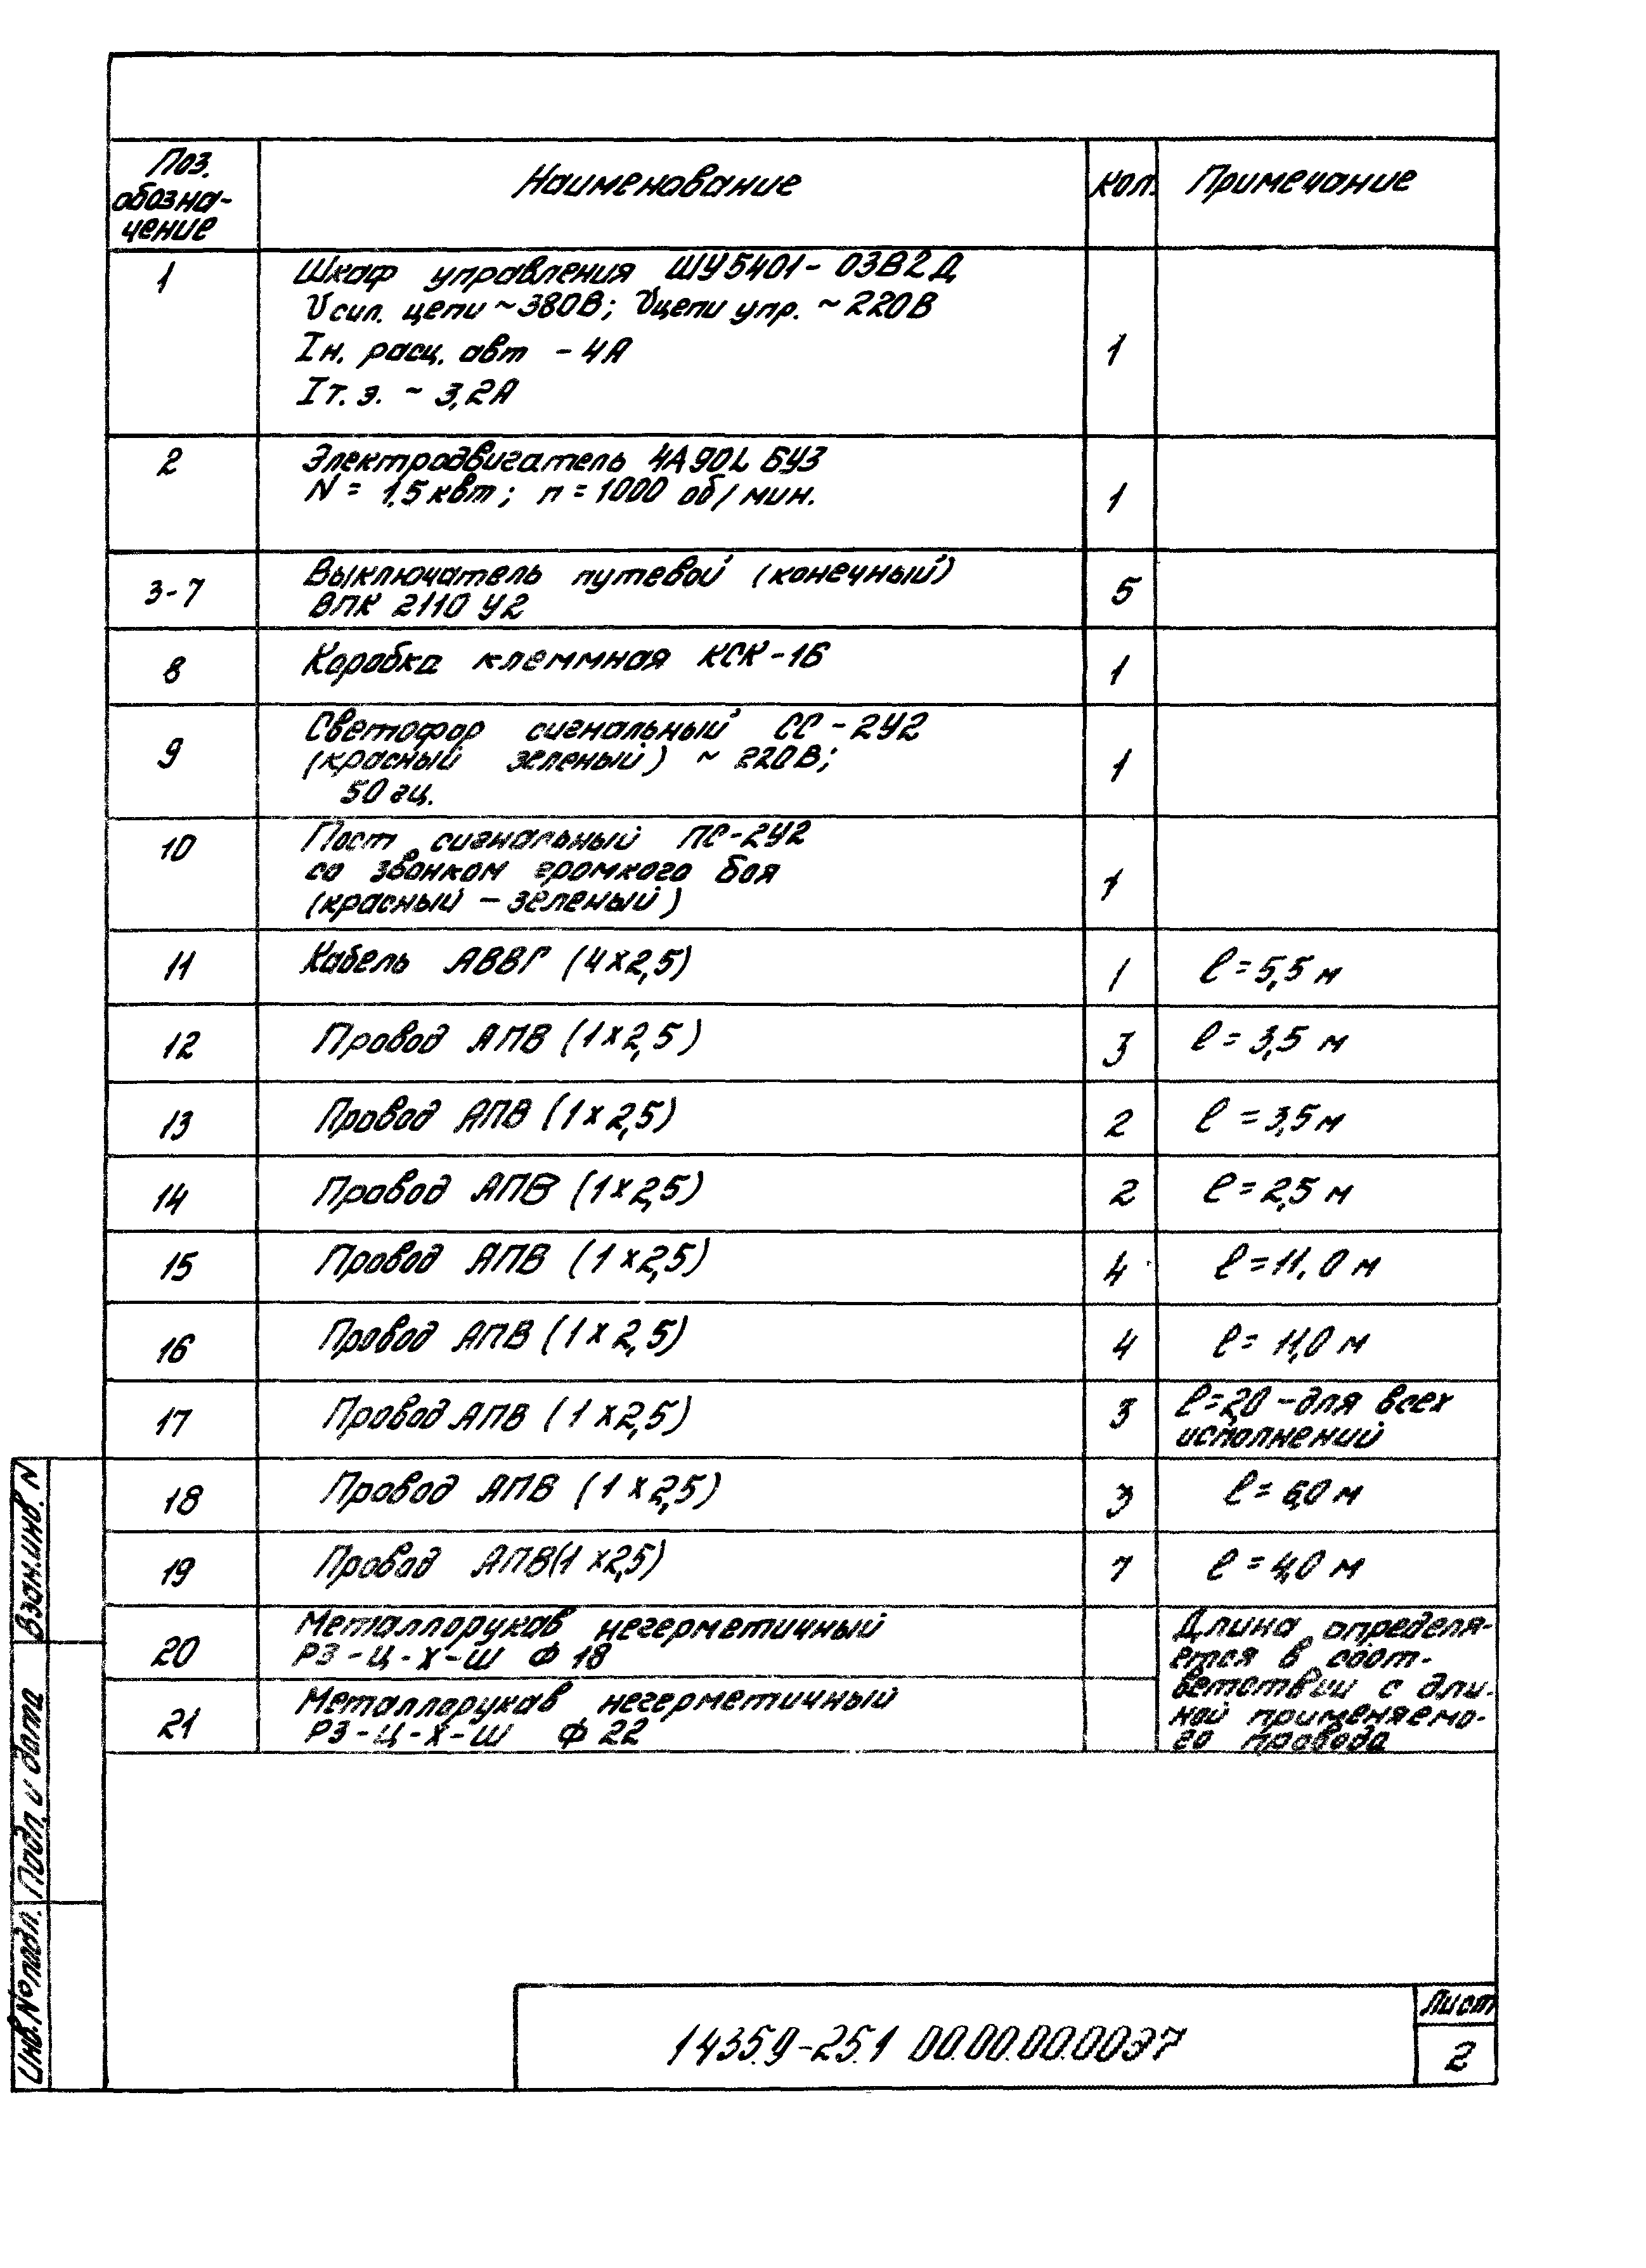 Поз.
обозна-
чение
Наименование
кол.
Примечание
1
Шкаф управления ШУ5401-03В2Д
Uсил. цепи ~380В; Uцепи упр. ~220В
Iн. расц. авт - 4А
Iт.э. ~ 3,2А
1
2
Электродвигатель 4А90L6У3
N = 1,5 квт; n = 1000 об/мин.
1
3-7
Выключатель путевой (конечный)
ВПК 2110 У2
5
8
Коробка клеммная КСК-16
1
9
Светофор сигнальный СС-2У2
(красный зеленый) ~ 220В;
50 гц.
1
10
Пост сигнальный ПС-2У2
со звонком громкого боя
(красный – зеленый)
1
11
Кабель АВВГ (4х2,5)
1
l = 5,5 м
12
Провод АПВ (1х2,5)
3
l = 3,5 м
13
Провод АПВ (1х2,5)
2
l = 3,5 м
14
Провод АПВ (1х2,5)
2
l = 2,5 м
15
Провод АПВ (1х2,5)
4
l = 11,0 м
16
Провод АПВ (1х2,5)
4
l = 11,0 м
17
Провод АПВ (1х2,5)
3
l=2,0 – для всех
исполнений
18
Провод АПВ (1х2,5)
3
l = 6,0 м
19
Провод АПВ(1х2,5)
7
l = 4,0 м
20
Металлорукав негерметичный
РЗ-Ц-Х-Ш Ф 18
21
Металлорукав негерметичный
РЗ-Ц-Х-Ш Ф 22
Длина определя-
ется в соот-
ветствии с дли-
ной применяемо-
го провода
Взам.инв. N
Подп. и дата
Инв.№ подл.
1435.9-25.1 00.00.00.00Э7
Лист
2